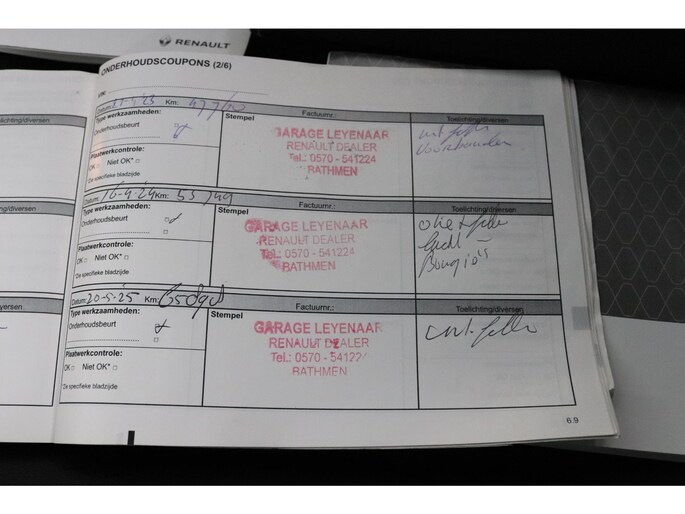 RENAULT
ONDERHOUDSCOUPONS (2/6)
VIN:
Datum: Km:
Factuurnr.: Toelichting/diversen
Type werkzaamheden: Stempel
Onderhoudsbeurt
Plaatwerkcontrole:
OK □ Niet OK* □
*De specifieke bladzijde
GARAGE LEYENAAR
RENAULT DEALER
Tel.: 0570 - 541224
BATHMEN
Voorbanden
Datum: 16-4-24 Km:
Factuurnr.: Toelichting/diversen
Type werkzaamheden: Stempel
Onderhoudsbeurt
Plaatwerkcontrole:
OK □ Niet OK* □
*De specifieke bladzijde
GARAGE LEYENAAR
RENAULT DEALER
Tel.: 0570 - 541224
BATHMEN
Bougie's
Datum: 20-5-25 Km:
Factuurnr.: Toelichting/diversen
Type werkzaamheden: Stempel
Onderhoudsbeurt
Plaatwerkcontrole:
OK □ Niet OK* □
*De specifieke bladzijde
GARAGE LEYENAAR
RENAULT DEALER
Tel.: 0570 - 541224
BATHMEN
6.9